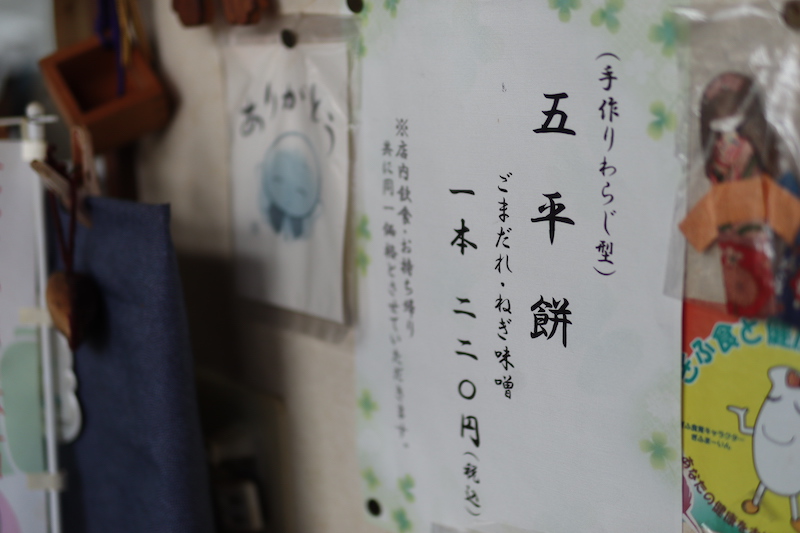 (手作りわらじ型)
五平餅
ごまだれ・ねぎ味噌
一本 二二〇円(税込)
※店内飲食・お持ち帰り
共に同一価格とさせていただきます。
ありがとう
ぎふ食と健康
あなたの健康を